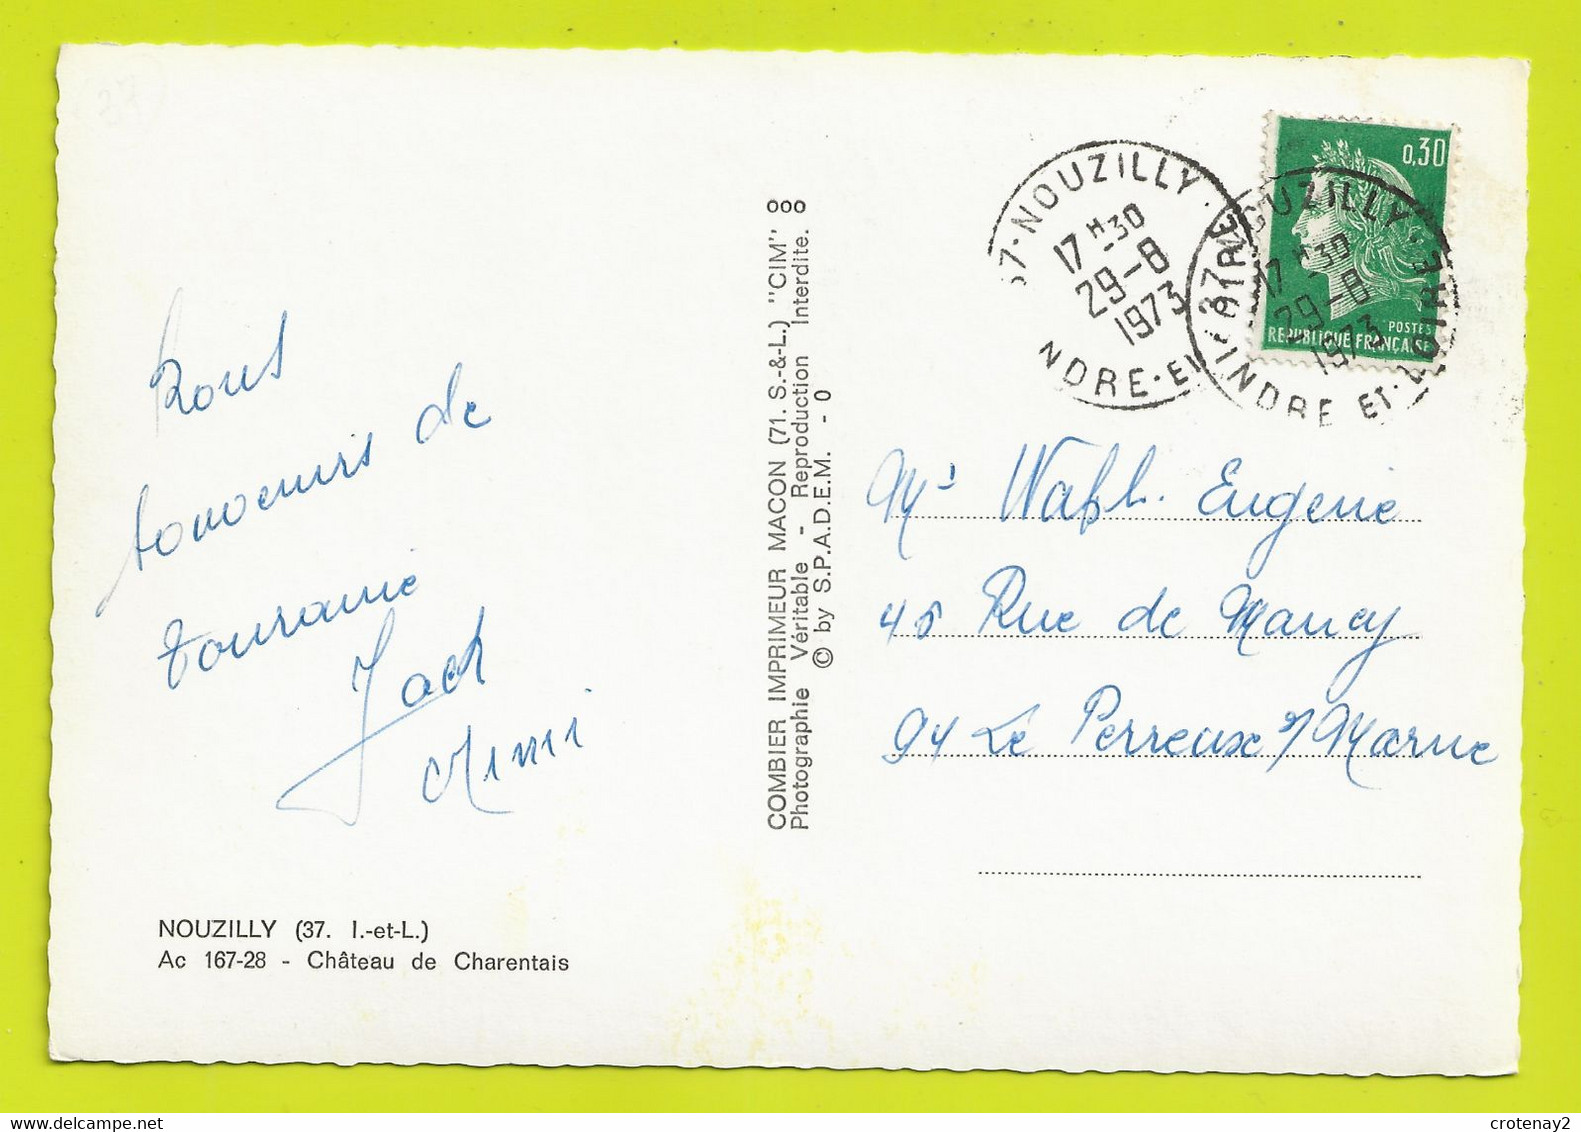 Bons
souvenirs de
touraine
Jack
Mimi
NOUZILLY (37. I.-et-L.)
Ac 167-28 - Château de Charentais
COMBIER IMPRIMEUR MACON (71. S.-&-L.) "CIM"
Photographie Véritable - Reproduction Interdite.
© by S.P.A.D.E.M. - 0
37-NOUZILLY
17 H 30
29-8
1973
INDRE-ET
NOUZILLY
17 H 30
29-8
1973
INDRE ET-LOIRE
0,30
POSTES
REPUBLIQUE FRANÇAISE
Eugenie
45 Rue de Nancy
94 Le Perreux s/Marne
crotenay2